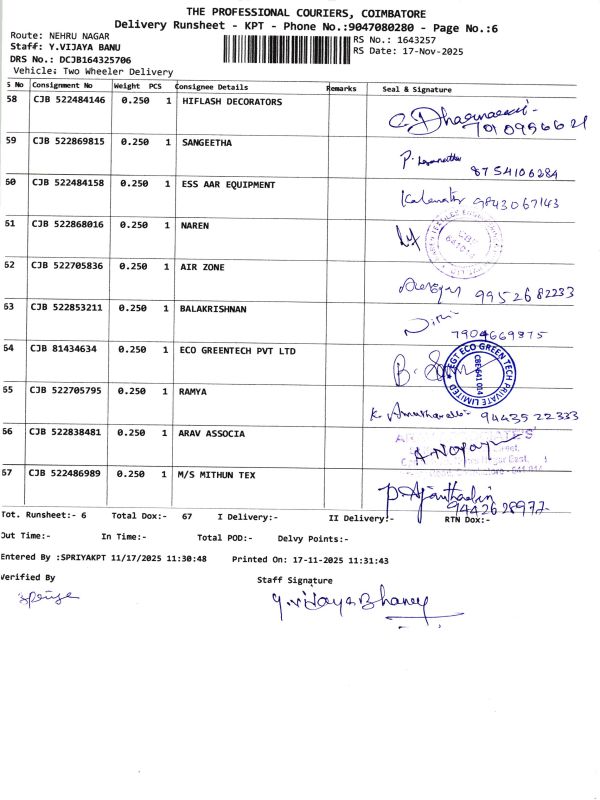 THE PROFESSIONAL COURIERS, COIMBATORE
Delivery Runsheet - KPT - Phone No.:9047080280 - Page No.:6
Route: NEHRU NAGAR
RS No.: 1643257
Staff: Y.VIJAYA BANU
RS Date: 17-Nov-2025
DRS No.: DCJB164325706
Vehicle: Two Wheeler Delivery
S No Consignment No Weight PCS Consignee Details Remarks Seal & Signature
58 CJB 522484146 0.250 1 HIFLASH DECORATORS
59 CJB 522869815 0.250 1 SANGEETHA 8754106284
60 CJB 522484158 0.250 1 ESS AAR EQUIPMENT 9843067143
61 CJB 522868016 0.250 1 NAREN
62 CJB 522705836 0.250 1 AIR ZONE 9952682233
63 CJB 522853211 0.250 1 BALAKRISHNAN 7904669875
64 CJB 81434634 0.250 1 ECO GREENTECH PVT LTD EGT ECO GREEN TECH PRIVATE LIMITED CBE-641 014
65 CJB 522705795 0.250 1 RAMYA 9443522333
66 CJB 522838481 0.250 1 ARAV ASSOCIA
67 CJB 522486989 0.250 1 M/S MITHUN TEX 9442628977
Tot. Runsheet:- 6 Total Dox:- 67 I Delivery:- II Delivery:- RTN Dox:-
Out Time:- In Time:- Total POD:- Delvy Points:-
Entered By :SPRIYAKPT 11/17/2025 11:30:48 Printed On: 17-11-2025 11:31:43
Verified By Staff Signature